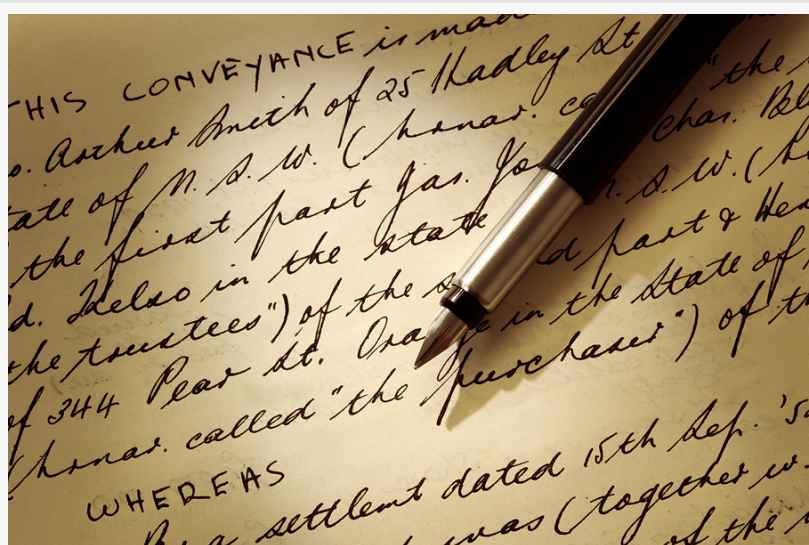 THIS CONVEYANCE is made
o. Arthur Smith of 25 Hadley St
tate of N.S.W. (hrnar. ca "the
the first part Jas. Jo Char. Bel
d. Kelso in the state N.S.W. (h
the trustees") of the s d part & Hen
of 344 Pear St. Orange in the State of
(hrnar. called "the purchaser") of t
WHEREAS
By a settlemt dated 15th Sep. '5
was (together w
of the